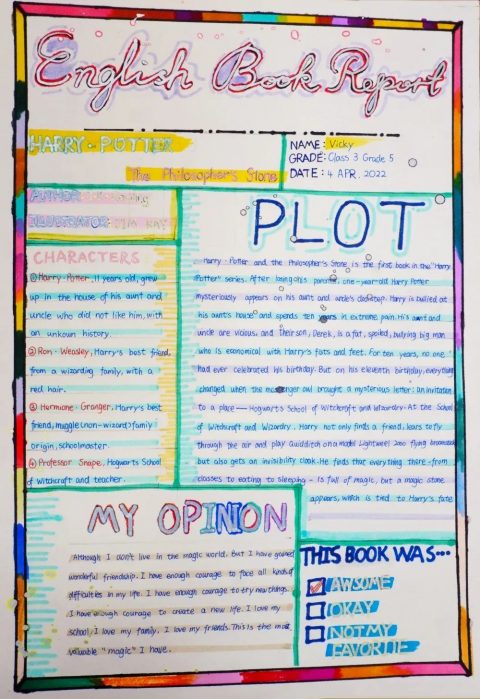 English Book Report
HARRY·POTTER
The Philosopher's Stone
NAME: Vicky
GRADE: Class 3 Grade 5
DATE: 4 APR. 2022
AUTHOR:
ILLUSTRATOR: JIM KAY
CHARACTERS
① Harry·Potter, 11 years old, grew
up in the house of his aunt and
uncle who did not like him, with
an unkown history.
② Ron·Weasley, Harry's best friend,
from a wizarding family, with a
red hair.
③ Hormone·Granger, Harry's best
friend, muggle (non-wizard) family
origin, schoolmaster.
④ Professor Snape, Hogwarts School
of Witchcraft and teacher.
PLOT
Harry·Potter and the Philosopher's Stone is the first book in the "Harry
Potter" series. After losing his parents, one-year-old Harry Potter
mysteriously appears on his aunt and uncle's doorstep. Harry is bullied at
his aunt's house and spends ten years in extreme pain. His aunt and
uncle are vicious, and their son, Derek, is a fat, spoiled, bullying big man
who is economical with Harry's fists and feet. For ten years, no one
had ever celebrated his birthday. But on his eleventh birthday, everything
changed when the owl brought a mysterious letter: an invitation
to a place — Hogwarts School of Witchcraft and Wizardry. At the School
of Witchcraft and Wizardry, Harry not only finds a friend, learns to fly
through the air and play Quidditch on a model Lightweel 2000 flying broomstick,
but also gets an invisibility cloak. He finds that everything there - from
classes to eating to sleeping - is full of magic, but a magic stone
appears, which is tied to Harry's fate
MY OPINION
Although I don't live in the magic world. But I have gained
wonderful friendship. I have enough courage to face all kinds of
difficulties in my life. I have enough courage to try new things.
I have enough courage to create a new life. I love my
school, I love my family, I love my friends. This is the most
valuable "magic" I have.
THIS BOOK WAS...
AWSOME
OKAY
NOT MY
FAVORITE